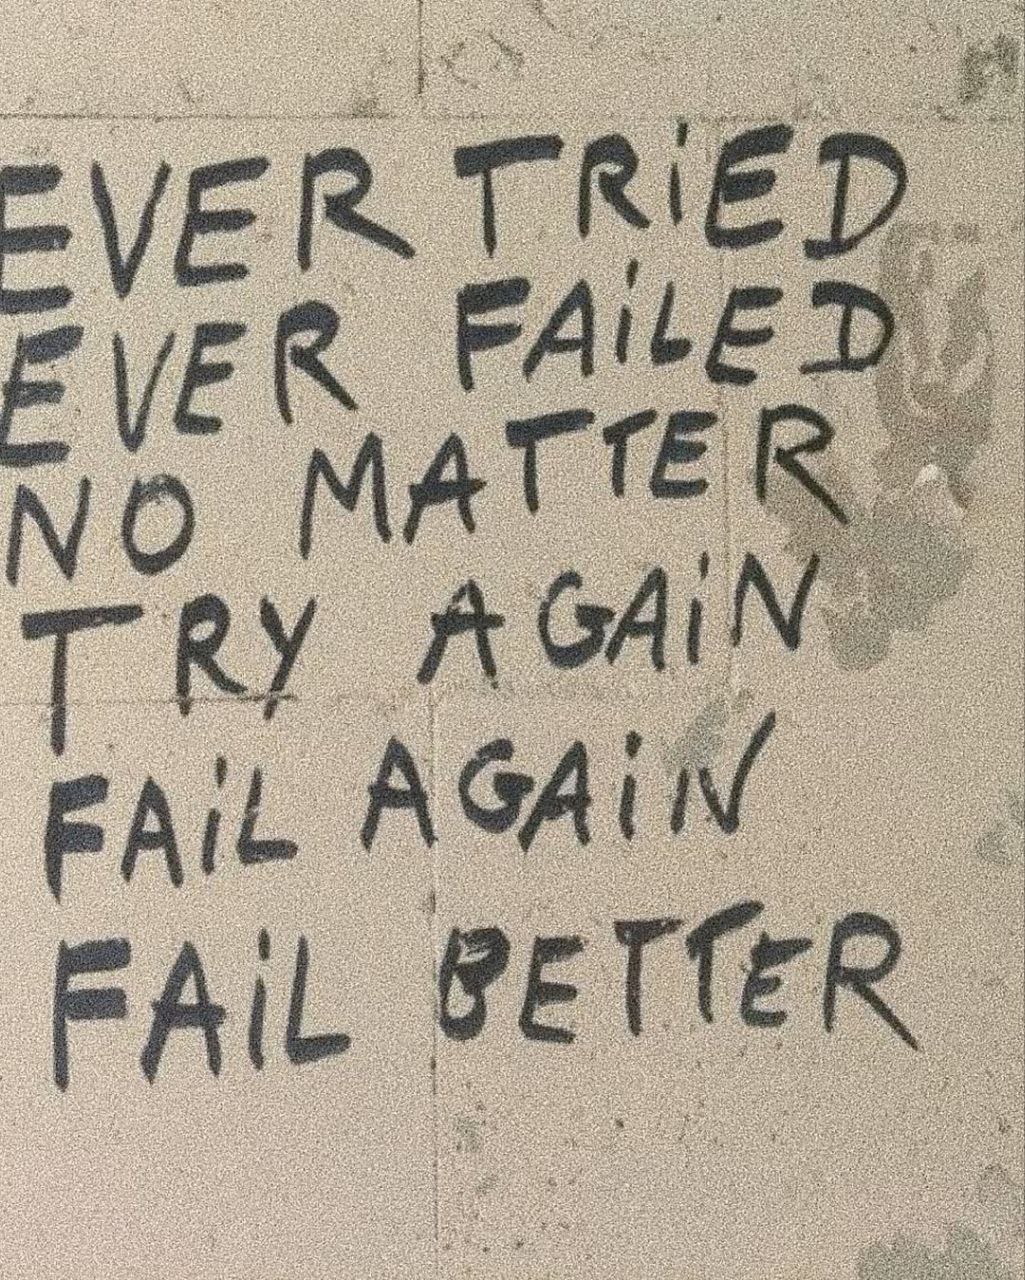 EVER TRiED
EVER FAiLED
NO MATTER
TRY AGAiN
FAiL AGAiN
FAiL BETTER